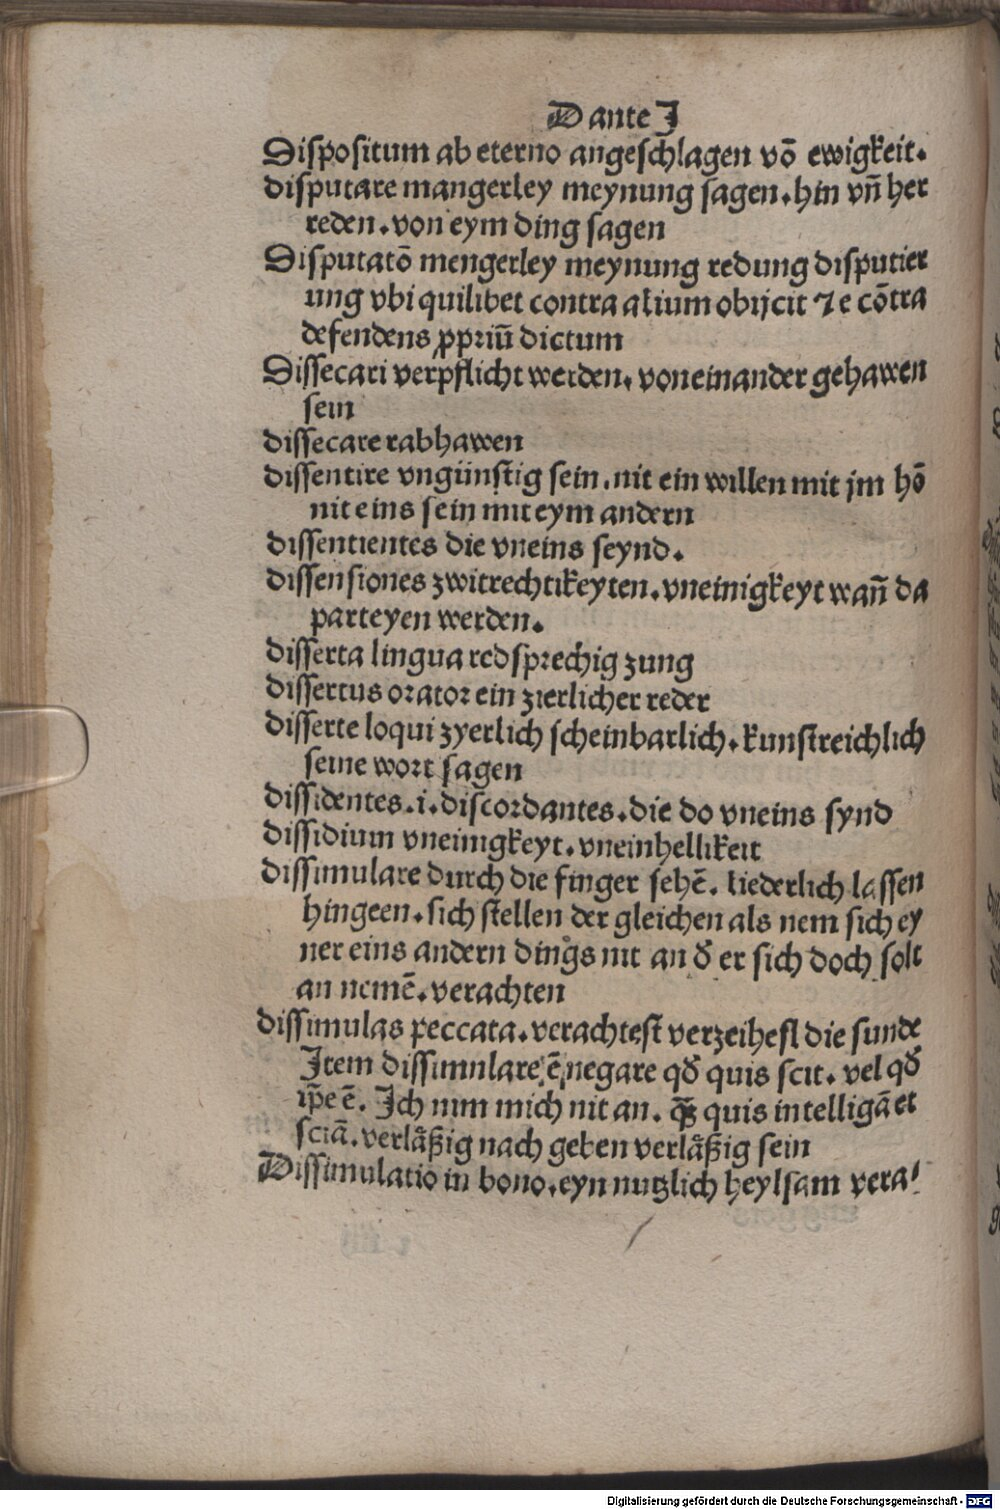 Dante I
Dispositum ab eterno angeschlagen võ ewigkeit.
disputare mangerley meynung sagen. hin vñ her
reden. von eym ding sagen
Disputatõ mengerley meynung redung disputier
ung vbi quilibet contra alium obijcit ⁊e cõtra
defendens ꝓpriũ dictum
Dissecari verpflicht werden. voneinander gehawen
sein
dissecare rabhawen
dissentire vngünstig sein. nit ein willen mit jm hõ
nit eins sein mit eym andern
dissentientes die vneins seynd.
dissensiones zwitrechtikeyten. vneinigkeyt wañ da
parteyen werden.
disserta lingua redsprechig zung
dissertus orator ein zierlicher reder
disserte loqui zyerlich scheinbarlich. kunstreichlich
seine wort sagen
dissidentes .i. discordantes. die do vneins synd
dissidium vneinigkeyt. vneinhellikeit
dissimulare durch die finger sehẽ. liederlich lassen
hingeen. sich stellen der gleichen als nem sich ey
ner eins andern dings nit an ð er sich doch solt
an nemẽ. verachten
dissimulas peccata. verachtest verzeihest die sunde
Item dissimulare ẽ negare qð quis scit. vel qð
ip̃e ẽ. Ich nim mich nit an. quis intelligã et
sciã. verlaͤßig nach geben verlaͤßig sein
Dissimulatio in bono. eyn nutzlich heylsam vera⸗
Digitalisierung gefördert durch die Deutsche Forschungsgemeinschaft - DFG